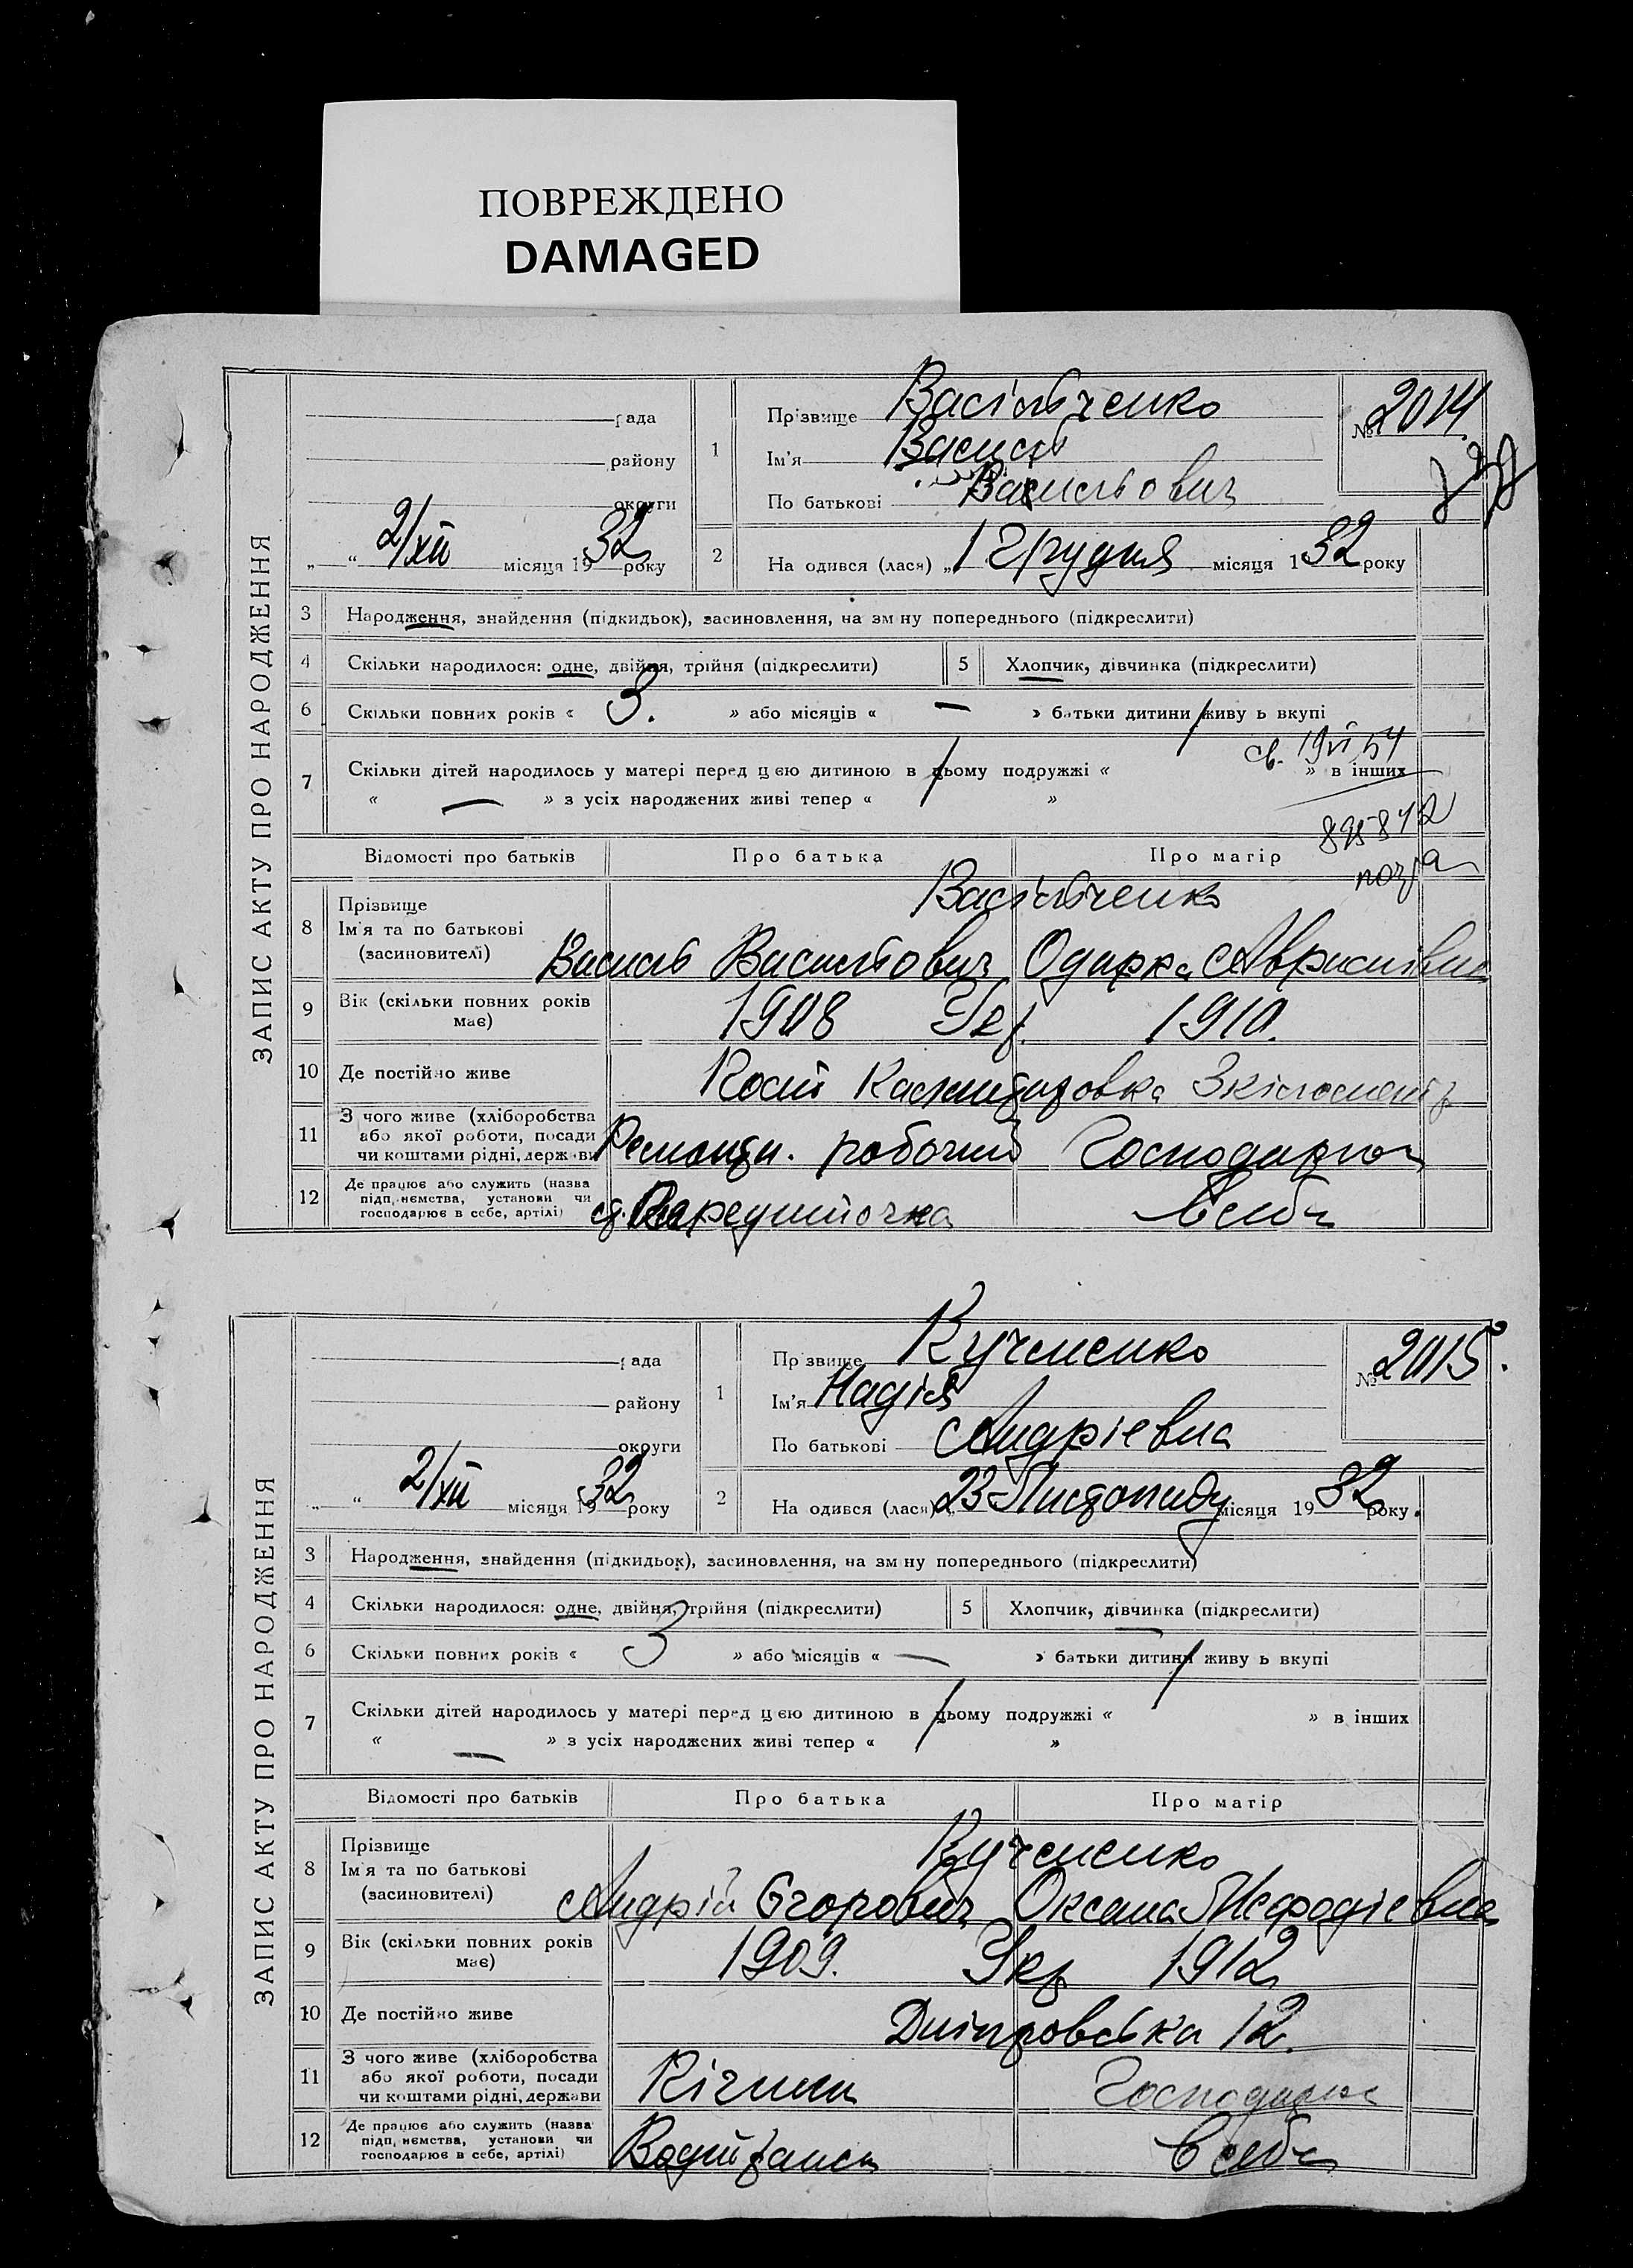 ПОВРЕЖДЕНО
DAMAGED
ЗАПИС АКТУ ПРО НАРОДЖЕННЯ
рада
району
округи
„ “ 2/XII місяця 1932 року
1
Прізвище Васільченко
Ім'я Василь
По батькові Васильович
№ 2014
2
На одився (лася) „1 Грудня місяця 132 року
3 Народження, знайдення (підкидьок), засиновлення, на зм ну попереднього (підкреслити)
4 Скільки народилося: одне, двійня, трійня (підкреслити) 5 Хлопчик, дівчинка (підкреслити)
6 Скільки повних років « 3. » або місяців « — » батьки дитини живу ь вкупі
св. 19 VI 54
7 Скільки дітей народилось у матері перед цією дитиною в цьому подружжі « » в інших
« — » з усіх народжених живі тепер « »
Відомості про батьків Про батька Про матір
8 Прізвище
Ім'я та по батькові
(засиновителі)
Васільченко
Василь Васильович Одарка
9 Вік (скільки повних років має) 1908 Укр. 1910.
10 Де постійно живе
11 З чого живе (хліборобства або якої роботи, посади чи коштами рідні, держави робочий Господарка
12 Де працює або служить (назва підп, ємства, установи чи господарює в себе, артілі) в себе
ЗАПИС АКТУ ПРО НАРОДЖЕННЯ
рада
району
округи
„ “ 2/XII місяця 1932 року
1
Пр звище Кучменко
Ім'я Надія
По батькові Андріевна
№ 2015.
2
На одився (лася) „23 Листопаду місяця 1932 року.
3 Народження, знайдення (підкидьок), засиновлення, на зм ну попереднього (підкреслити)
4 Скільки народилося: одне, двійня, трійня (підкреслити) 5 Хлопчик, дівчинка (підкреслити)
6 Скільки повних років « 3 » або місяців « — » батьки дитини живу ь вкупі
7 Скільки дітей народилось у матері перед цією дитиною в цьому подружжі « » в інших
« — » з усіх народжених живі тепер « »
Відомості про батьків Про батька Про матір
8 Прізвище
Ім'я та по батькові
(засиновителі)
Кучменко
Андрій Єгорович Оксана Мефодіевна
9 Вік (скільки повних років має) 1909. Укр 1912
10 Де постійно живе Дніпровська 12.
11 З чого живе (хліборобства або якої роботи, посади чи коштами рідні, держави Господарка
12 Де працює або служить (назва підп, ємства, установи чи господарює в себе, артілі) в себе